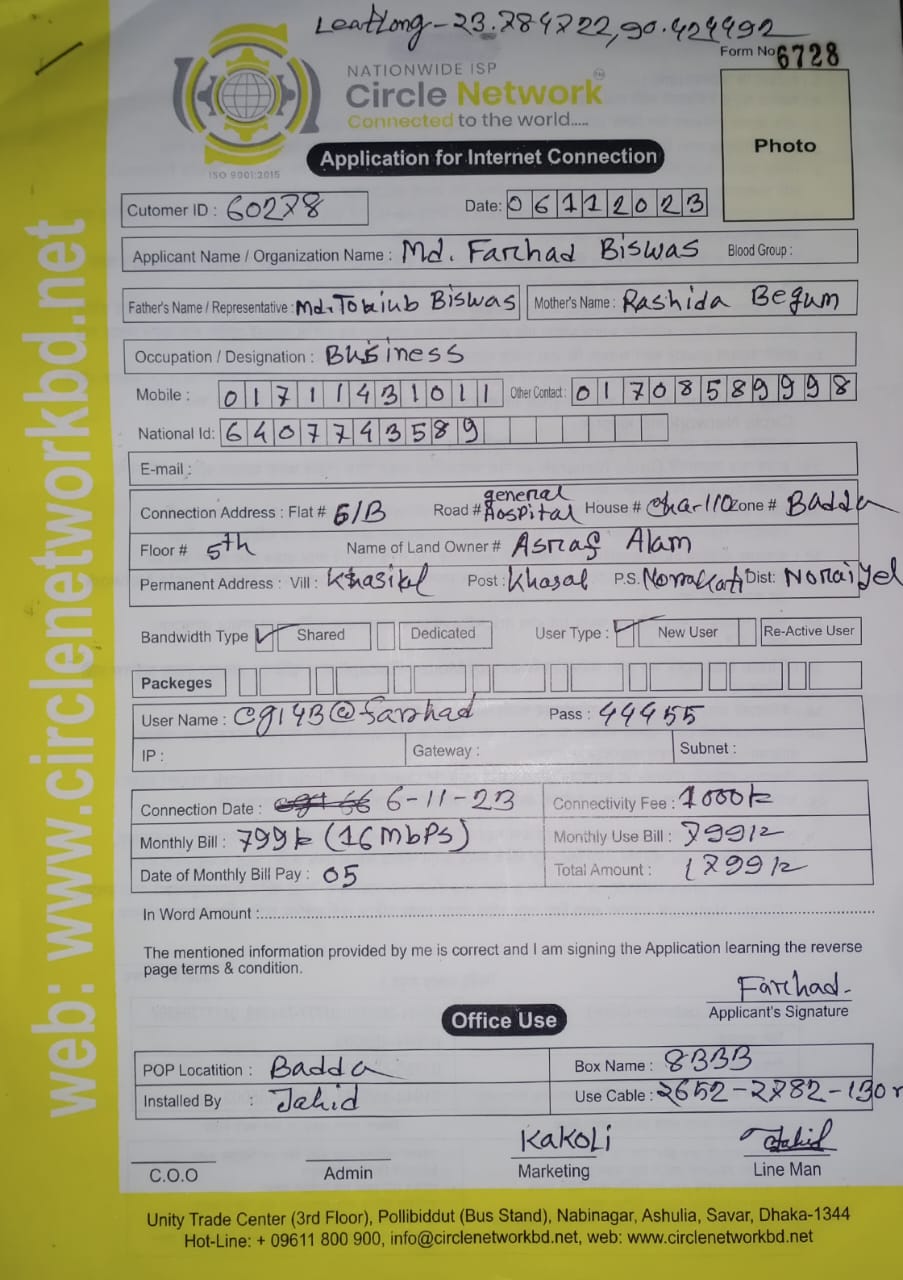 Leatlong - 23.784722, 90.424492
Form No 6728
NATIONWIDE ISP
Circle Network
Connected to the world.....
ISO 9001:2015
Photo
Application for Internet Connection
Cutomer ID : 60278 Date: 06112023
Applicant Name / Organization Name : Md. Farhad Biswas Blood Group :
Father's Name / Representative : Md. Biswas Mother's Name : Rashida Begum
Occupation / Designation : Business
Mobile : 01711431011 Other Contact : 01708589998
National Id: 6407743589
E-mail :
Connection Address : Flat # 5/B Road # general Hospital House # Zone # Badda
Floor # 5th Name of Land Owner # Asraf Alam
Permanent Address : Vill : Post : Khasal P.S. Dist:
Bandwidth Type ✓ Shared Dedicated User Type : ✓ New User Re-Active User
Packeges
User Name : cg143@farhad Pass : 44455
IP : Gateway : Subnet :
Connection Date : 6-11-23 Connectivity Fee : 1000k
Monthly Bill : 799k (16Mbps) Monthly Use Bill : 799k
Date of Monthly Bill Pay : 05 Total Amount : 1799k
In Word Amount :
The mentioned information provided by me is correct and I am signing the Application learning the reverse
page terms & condition.
Farhad
Applicant's Signature
Office Use
POP Locatition : Badda Box Name : 8333
Installed By : Jahid Use Cable : 2652-2782-130
Kakoli Jahid
C.O.O Admin Marketing Line Man
Unity Trade Center (3rd Floor), Pollibiddut (Bus Stand), Nabinagar, Ashulia, Savar, Dhaka-1344
Hot-Line: + 09611 800 900, info@circlenetworkbd.net, web: www.circlenetworkbd.net
web: www.circlenetworkbd.net